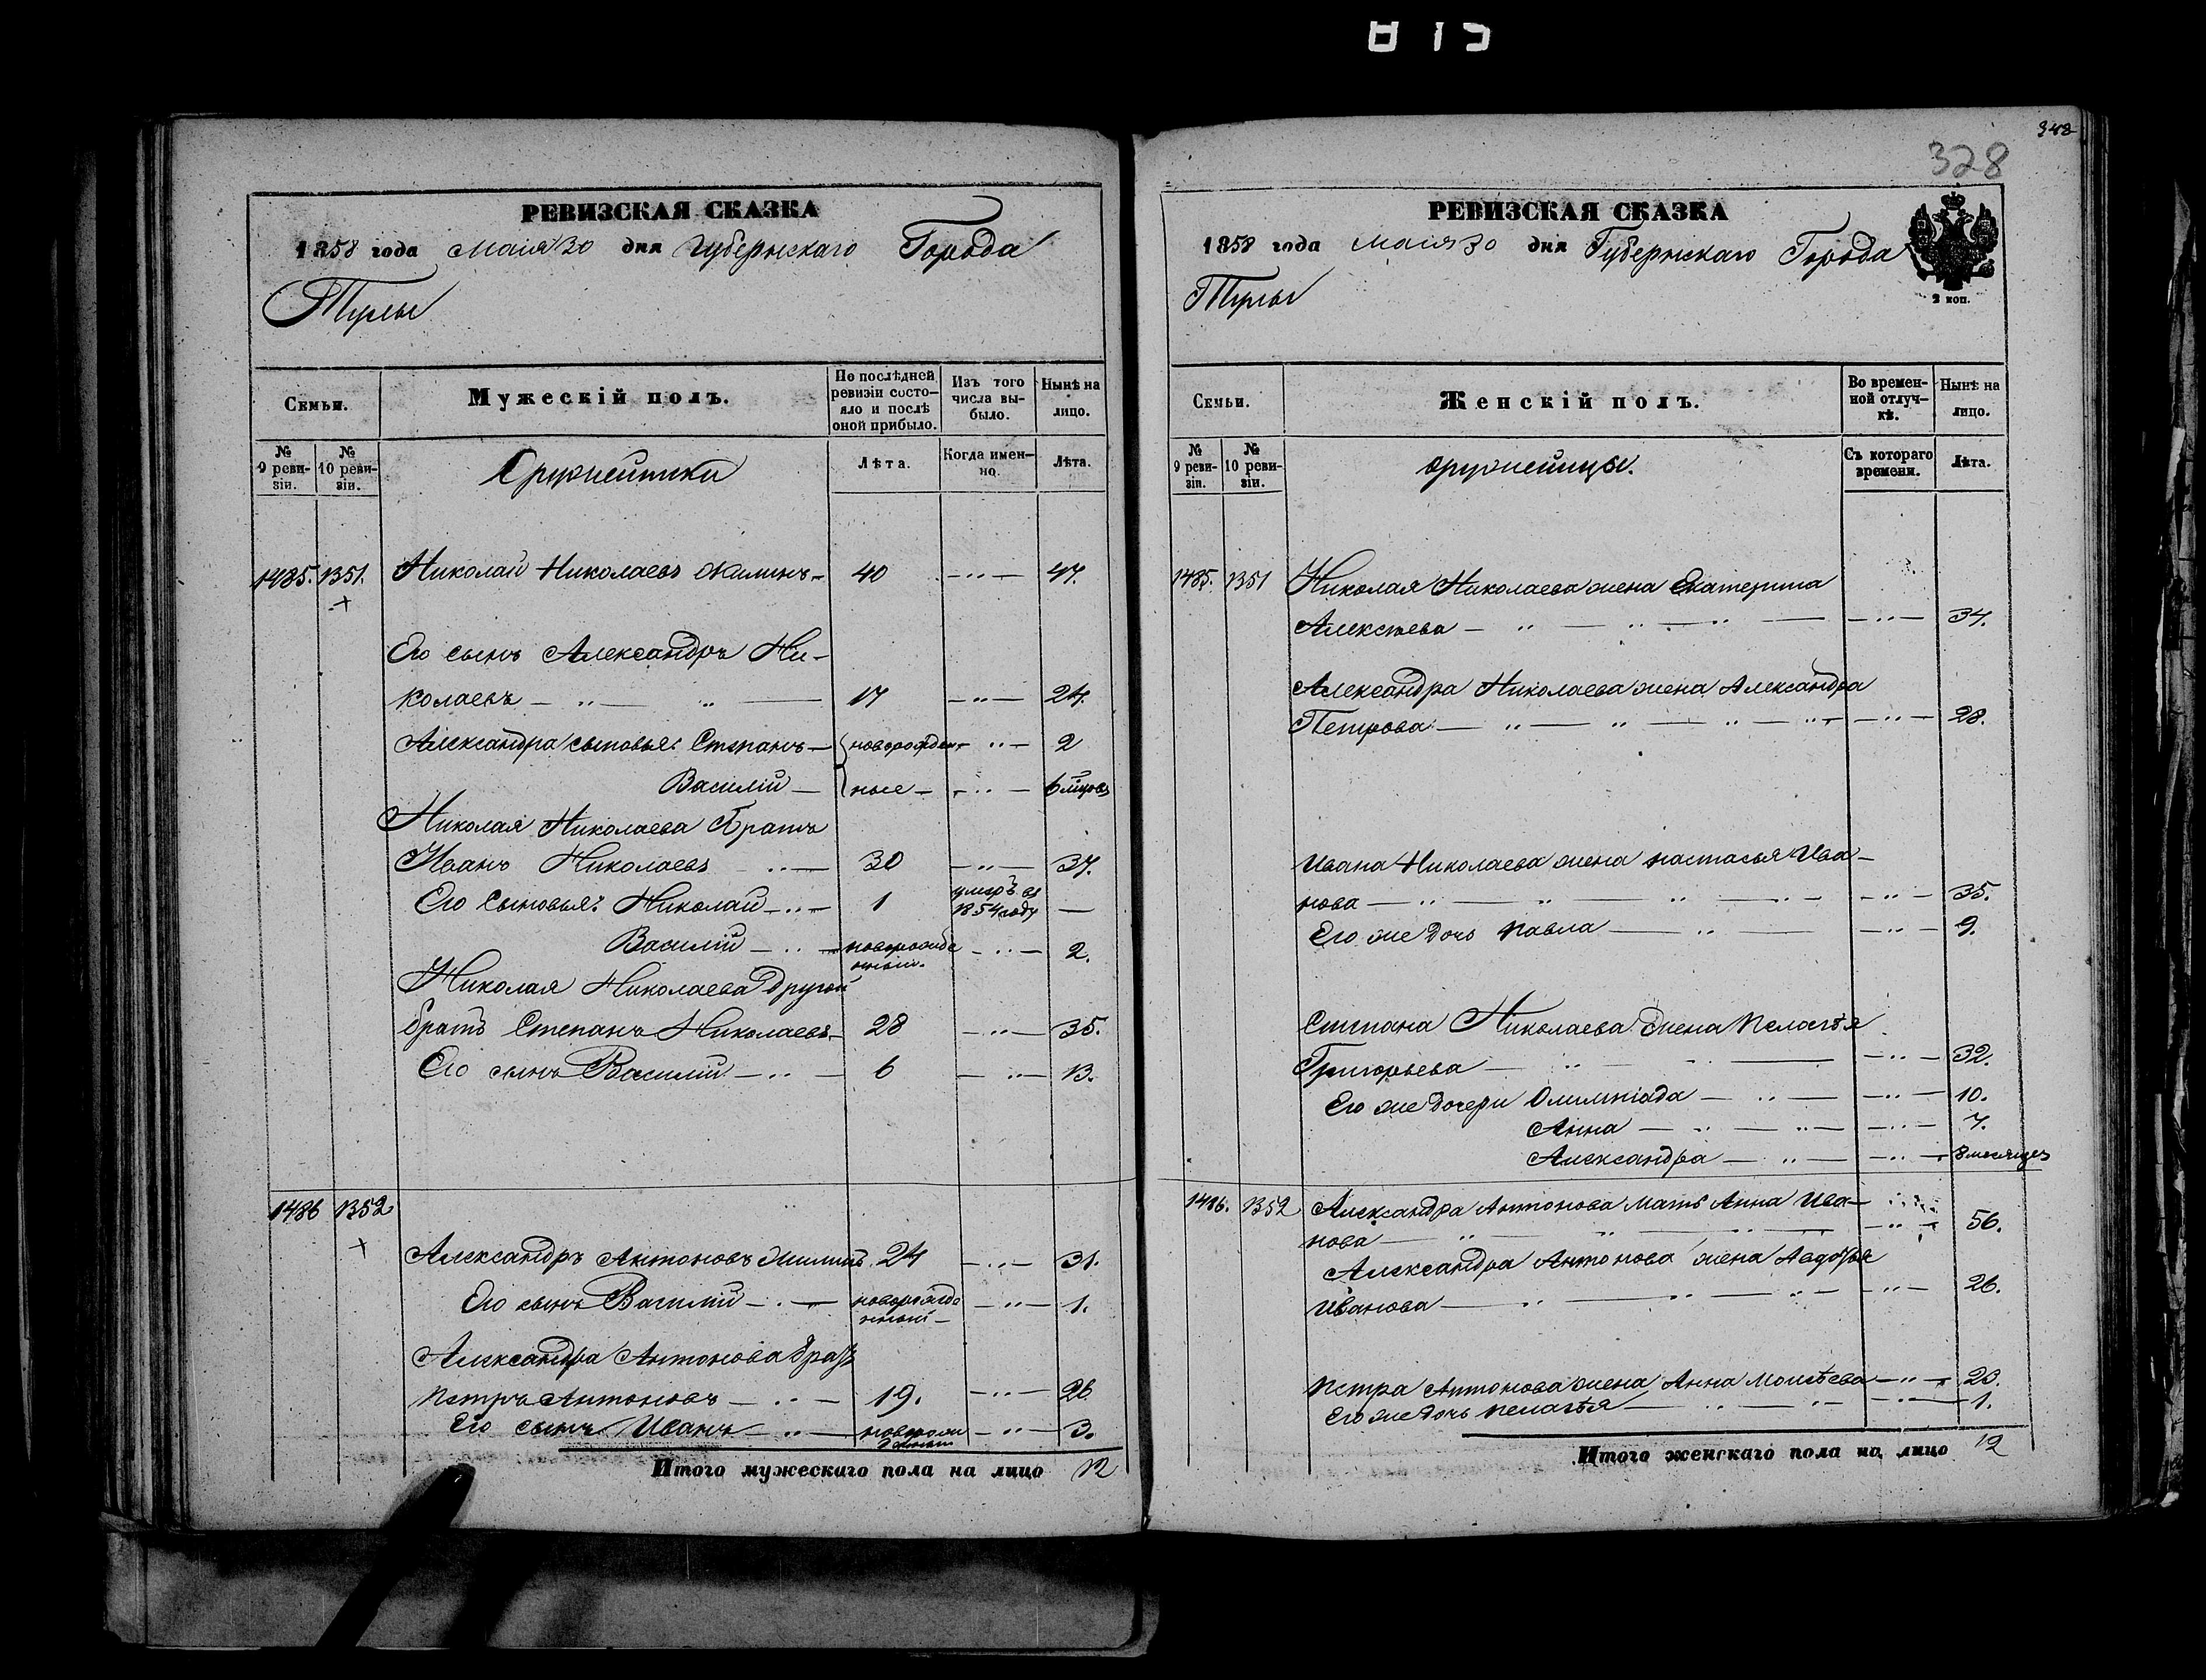 815
348
328
РЕВИЗСКАЯ СКАЗКА
1858 года Маія 30 дня Губернскаго Города
Тулы
Семьи.
Мужескій полъ.
По послѣдней ревизіи состояло и послѣ оной прибыло.
Изъ того числа выбыло.
Нынѣ на лицо.
№ 9 ревизіи.
№ 10 ревизіи.
Оружейники
Лѣта.
Когда именно.
Лѣта.
1485. 1351. Николай Николаевъ 40 — " — 47.
+
Его сынъ Александръ Ни-
колаевъ — " — " — 17 — " — 24.
Александра сыновья: Степанъ — новорожден- " — 2
Василій — ные — " — 6 мѣцовъ
Николая Николаева Братъ
Иванъ Николаевъ " — 30 — " — 37.
Его Сыновья: Николай — " — 1 умеръ въ 1854 году —
Василій — " — новорожде нный. — " — 2.
Николая Николаева Другой
братъ Степанъ Николаевъ — 28 — " — 35.
Его сынъ Василій — " — 6 — " — 13.
1486 1352
+
Александръ Антоновъ 24 — " — 31.
Его сынъ Василій — " — новорожде нный — " — 1.
Александра Антонова братъ
Петръ Антоновъ — " — 19. — " — 26
Его сынъ Иванъ — " — новорож денный — " — 3.
Итого мужескаго пола на лицо 12
РЕВИЗСКАЯ СКАЗКА
1858 года Маія 30 дня Губернскаго Города
Тулы
2 коп.
Семьи.
Женскій полъ.
Во временной отлучкѣ.
Нынѣ на лицо.
№ 9 ревизіи.
№ 10 ревизіи.
оружейницы.
Съ котораго времени.
Лѣта.
1485. 1351 Николая Николаева жена Екатерина
Алексѣева — " — " — " — — " — 34.
Александра Николаева жена Александра
Петрова — " — " — " — " — — " — 28.
Ивана Николаева жена Настасья Ива-
нова — " — " — " — " — — " — 35.
Его же Дочь Павла — " — — " — 9.
Степана Николаева жена Пелагѣя
Григорьева — " — " — — " — 32.
Его же Дочери Олимпіада — " — — " — 10.
Анна — " — " — — " — 7.
Александра — " — — " — 8 месяцев
1486. 1352 Александра Антонова Мать Анна Ива-
нова — " — " — — " — 56.
Александра Антонова жена Авдотья
Иванова — " — " — " — — " — 26.
Петра Антонова жена Анна Моисѣева — " — 20.
Его же Дочь Пелагѣя — " — " — — " — 1.
Итого женскаго пола на лицо 12